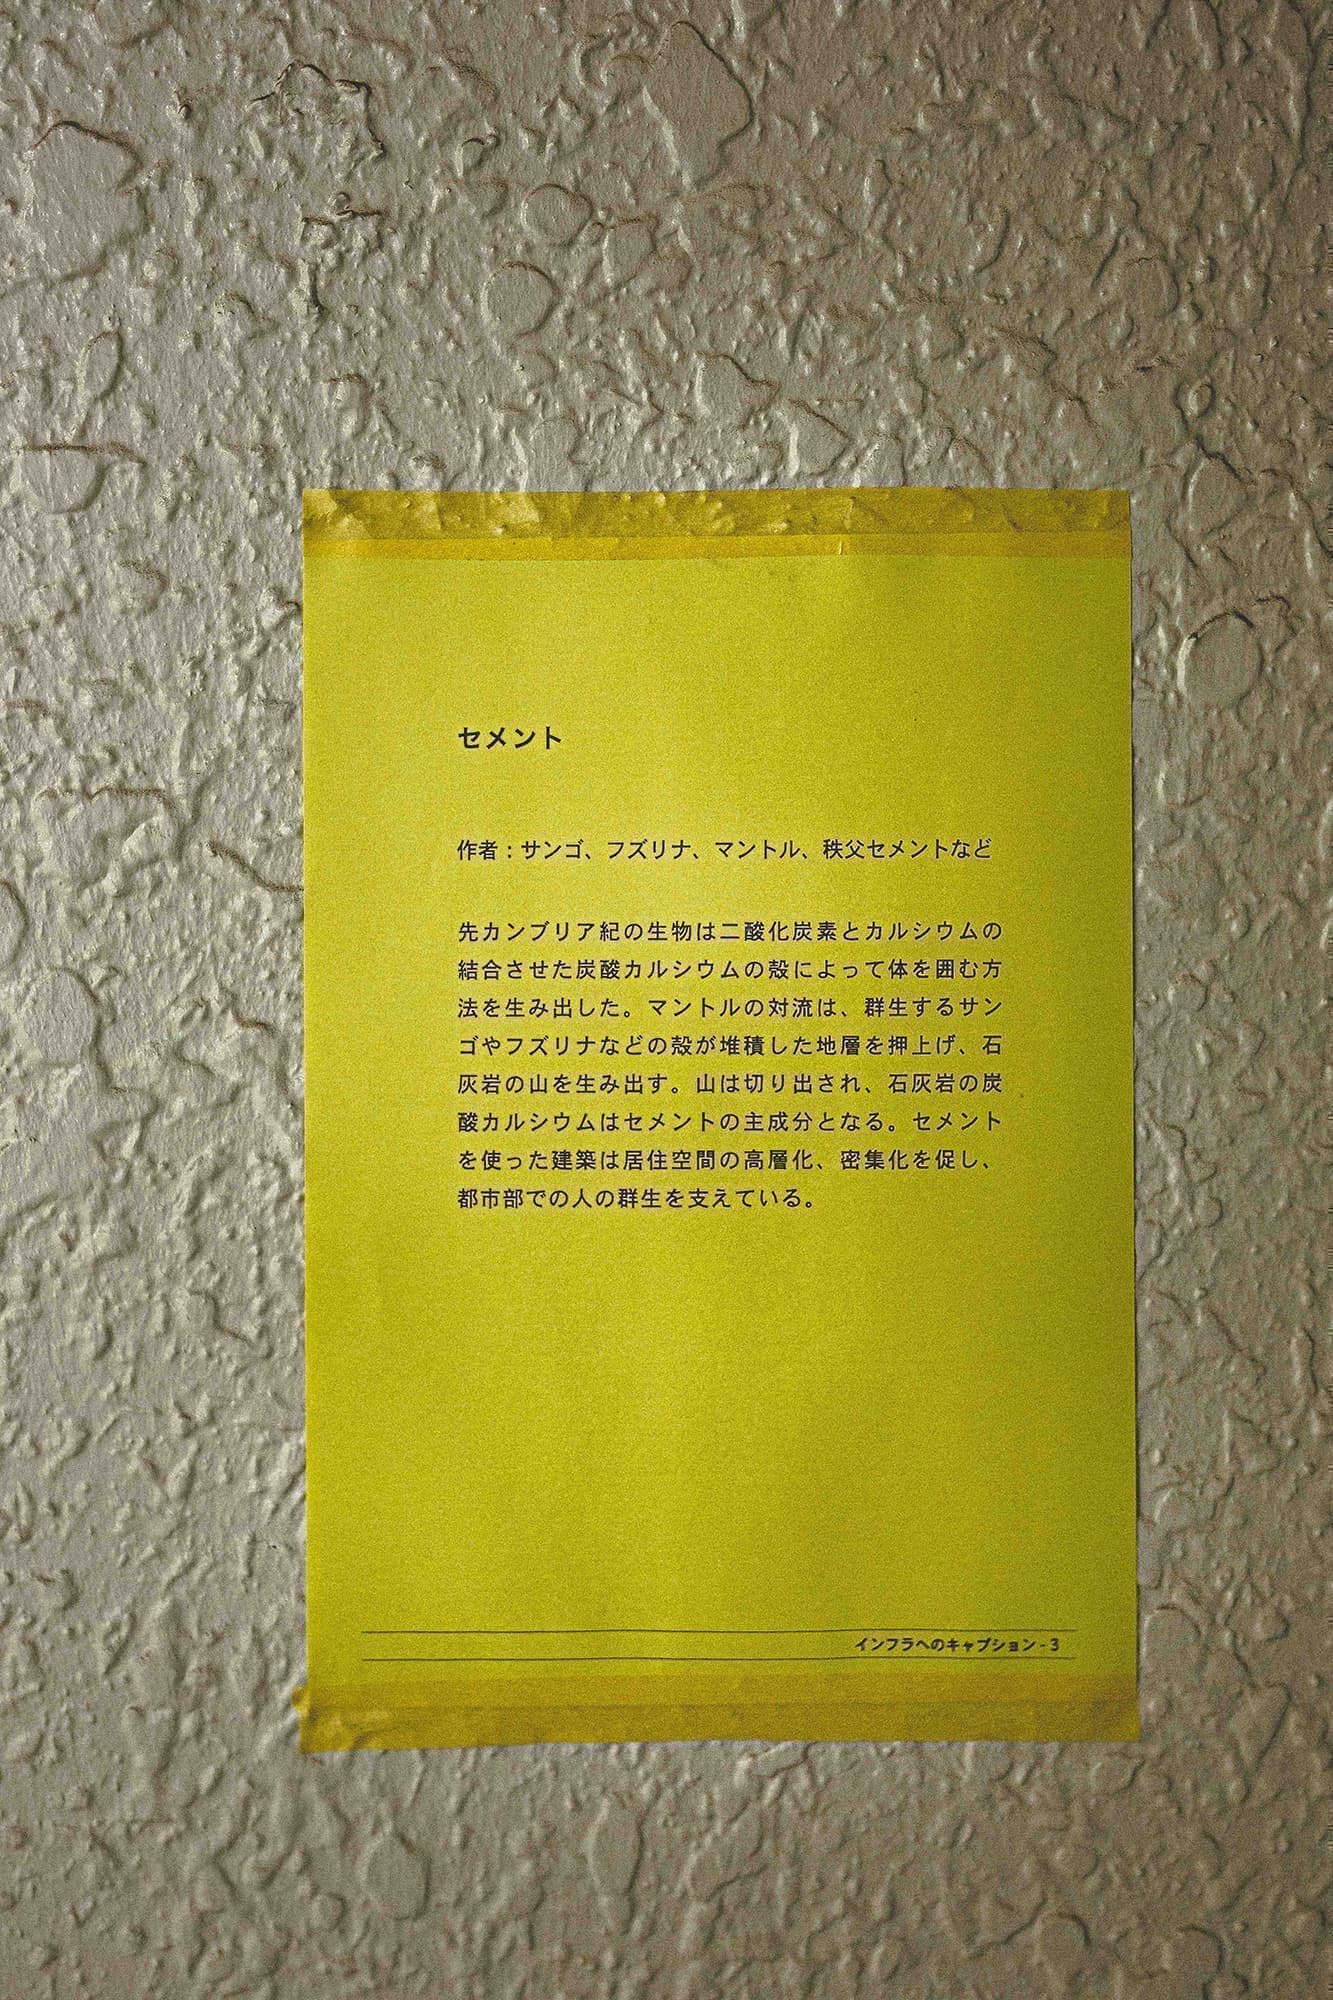 セメント
作者：サンゴ、フズリナ、マントル、秩父セメントなど
先カンブリア紀の生物は二酸化炭素とカルシウムの
結合させた炭酸カルシウムの殻によって体を囲む方
法を生み出した。マントルの対流は、群生するサン
ゴやフズリナなどの殻が堆積した地層を押上げ、石
灰岩の山を生み出す。山は切り出され、石灰岩の炭
酸カルシウムはセメントの主成分となる。セメント
を使った建築は居住空間の高層化、密集化を促し、
都市部での人の群生を支えている。
インフラへのキャプション - 3